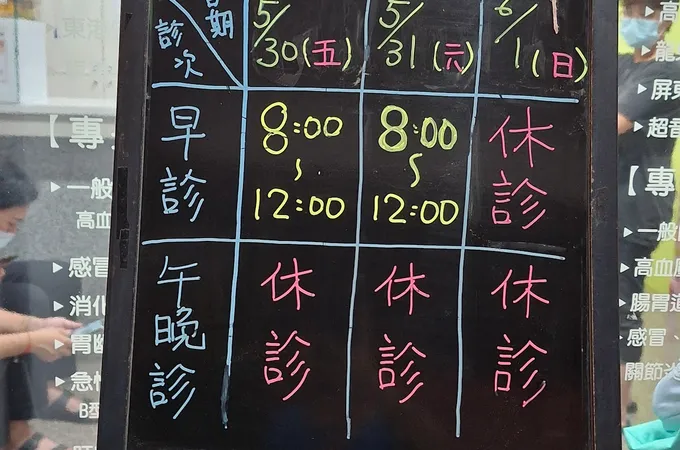 日期
診次
5/30(五)
5/31(六)
6/1(日)
早診
8:00~12:00
8:00~12:00
休診
午晚診
休診
休診
休診
【專
▸一般
高血
▸感冒
▸消化
▸胃
▸急性
B型
▸高
▸屏東
▸超音
【專
▸一般
▸高血
▸腸胃道
▸感冒、
關節